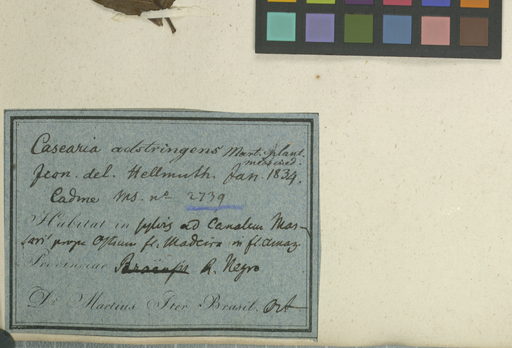 Casearia adstringens Mart. plant.
med. ined.
Icon. del. Hellmuth. Jan. 1834.
Cadme Ms. nº 2739
Habitat in sylvis ad Canalem Mas-
sari prope Ostium fl. Madeira in fl. Amaz
Provinciae R. Negro
Dr Martius Iter Brasil. Oct